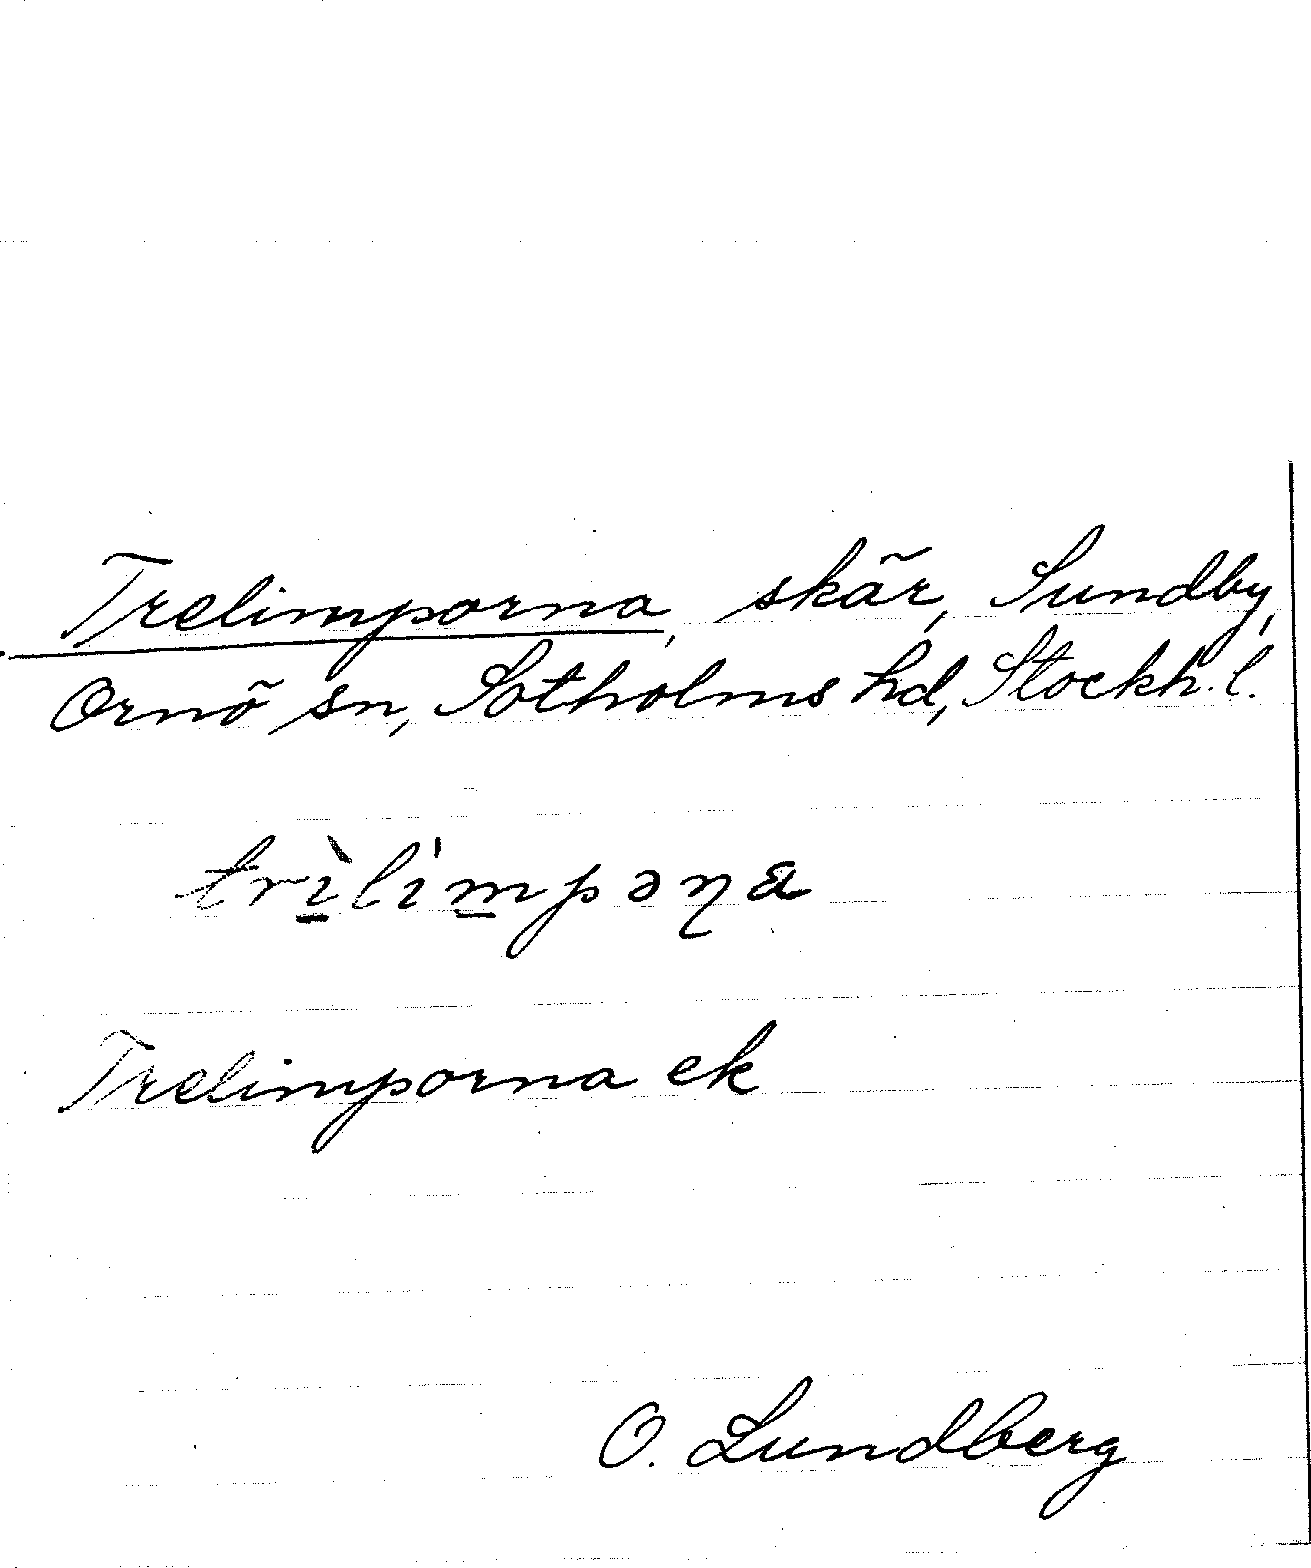 Trelimporna, skär, Sundby,
Ornö sn, Sotholms hd, Stockh. l.
trı̠̀lı̍m̠pəɳa
Trelimporna ek
O. Lundberg